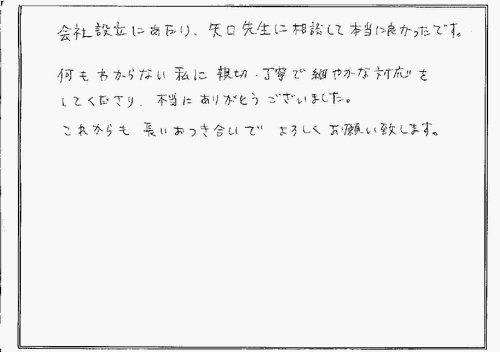 会社設立にあたり、矢口先生に相談して本当に良かったです。
何もわからない私に親切・丁寧で細やかな対応を
してくださり、本当にありがとうございました。
これからも長いおつき合いでよろしくお願い致します。